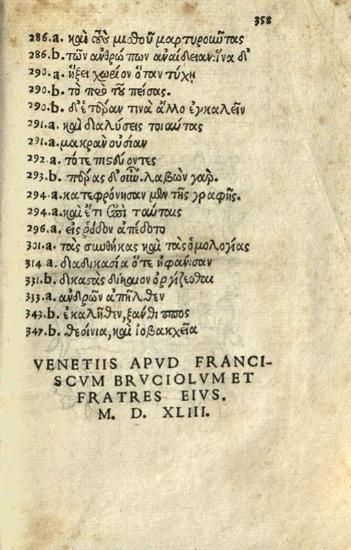 358
286.a. καὶ τοῦ μισθοῦ μαρτυροιῶτας
286.b. τῶν ἀνθρώπων ἀναίδειαν: ἵνα δι'
290.a. ἥξει χωρίον ὅταν τύχῃ
290.b. τὸ ποῦ τοῦ πείσας.
290.b. δι' ἑτόραν τινὰ ἄλλο ἐγκαλεῖν
291.a. καὶ διαλύσεις τοιαύτας
291.a. μακρὰν οὐσίαν
292.a τότε πιστεύοντες
293.b. πόρας δ' οὖν. λαβὼν γάρ.
294.a κατεφρόνησαν μὲν τῆς γραφῆς.
294.a. καὶ ἔτι ἐπὶ ταύταις
296.a. εἰς ῥόδον ἀπέδοτο
301.a τὰς συνθήκας καὶ τὰς ὁμολογίας
314 a. διαδικασία ὅτε ἠφάνισαν
331.b. δικαστὰς δίκαιον ὀργίζεσθαι
333.a. ἀνδρῶν ἀπῆλθεν
343.b. ἐκαλήθεν, ξανθίππος
347.b. θεοίνια, καὶ ἰοβακχεῖα
VENETIIS APVD FRANCI-
SCVM BRVCIOLVM ET
FRATRES EIVS.
M. D. XLIII.